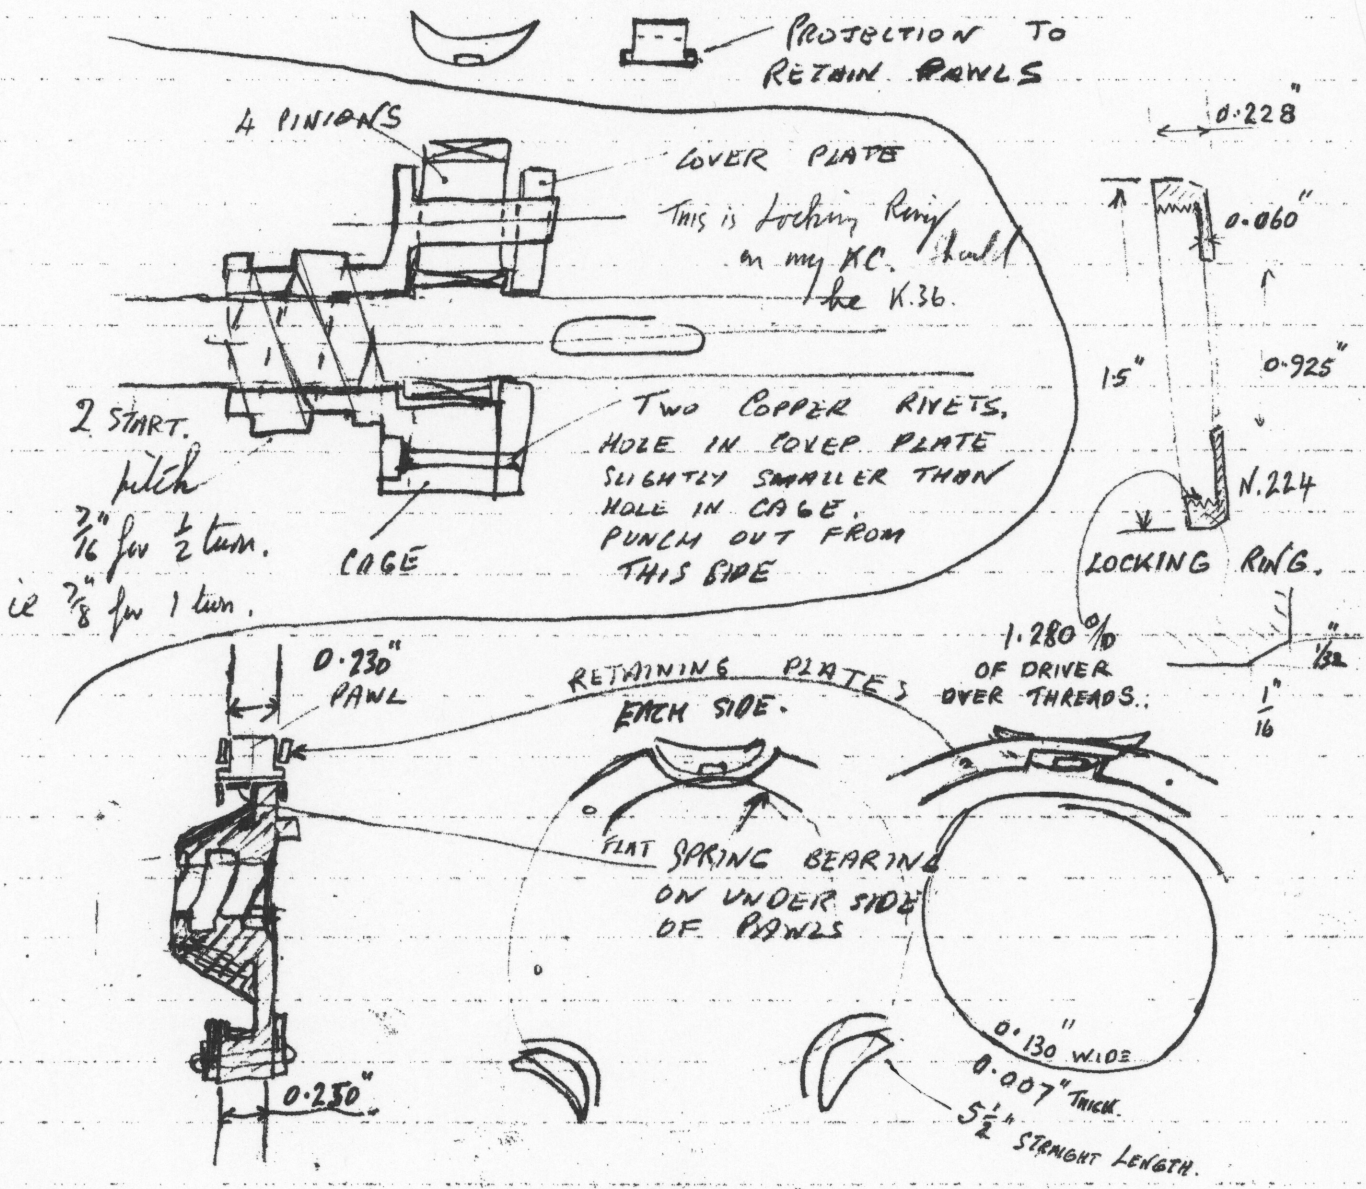 PROJECTION TO
RETAIN PAWLS
4 PINIONS
COVER PLATE
This is Locking Ring
on my KC. Should
be K.36.
0.228"
0.060"
1.5"
0.925"
N.224
LOCKING RING.
2 START.
pitch
7/16" for 1/2 turn.
ie 7/8" for 1 turn.
CAGE
TWO COPPER RIVETS.
HOLE IN COVER PLATE
SLIGHTLY SMALLER THAN
HOLE IN CAGE.
PUNCH OUT FROM
THIS SIDE
1.280 O/D
OF DRIVER
OVER THREADS..
1/32"
1/16"
0.230"
PAWL
RETAINING PLATES
EACH SIDE.
FLAT SPRING BEARING
ON UNDER SIDE
OF PAWLS
0.250"
0.130" WIDE
0.007" THICK.
5 1/2" STRAIGHT LENGTH.